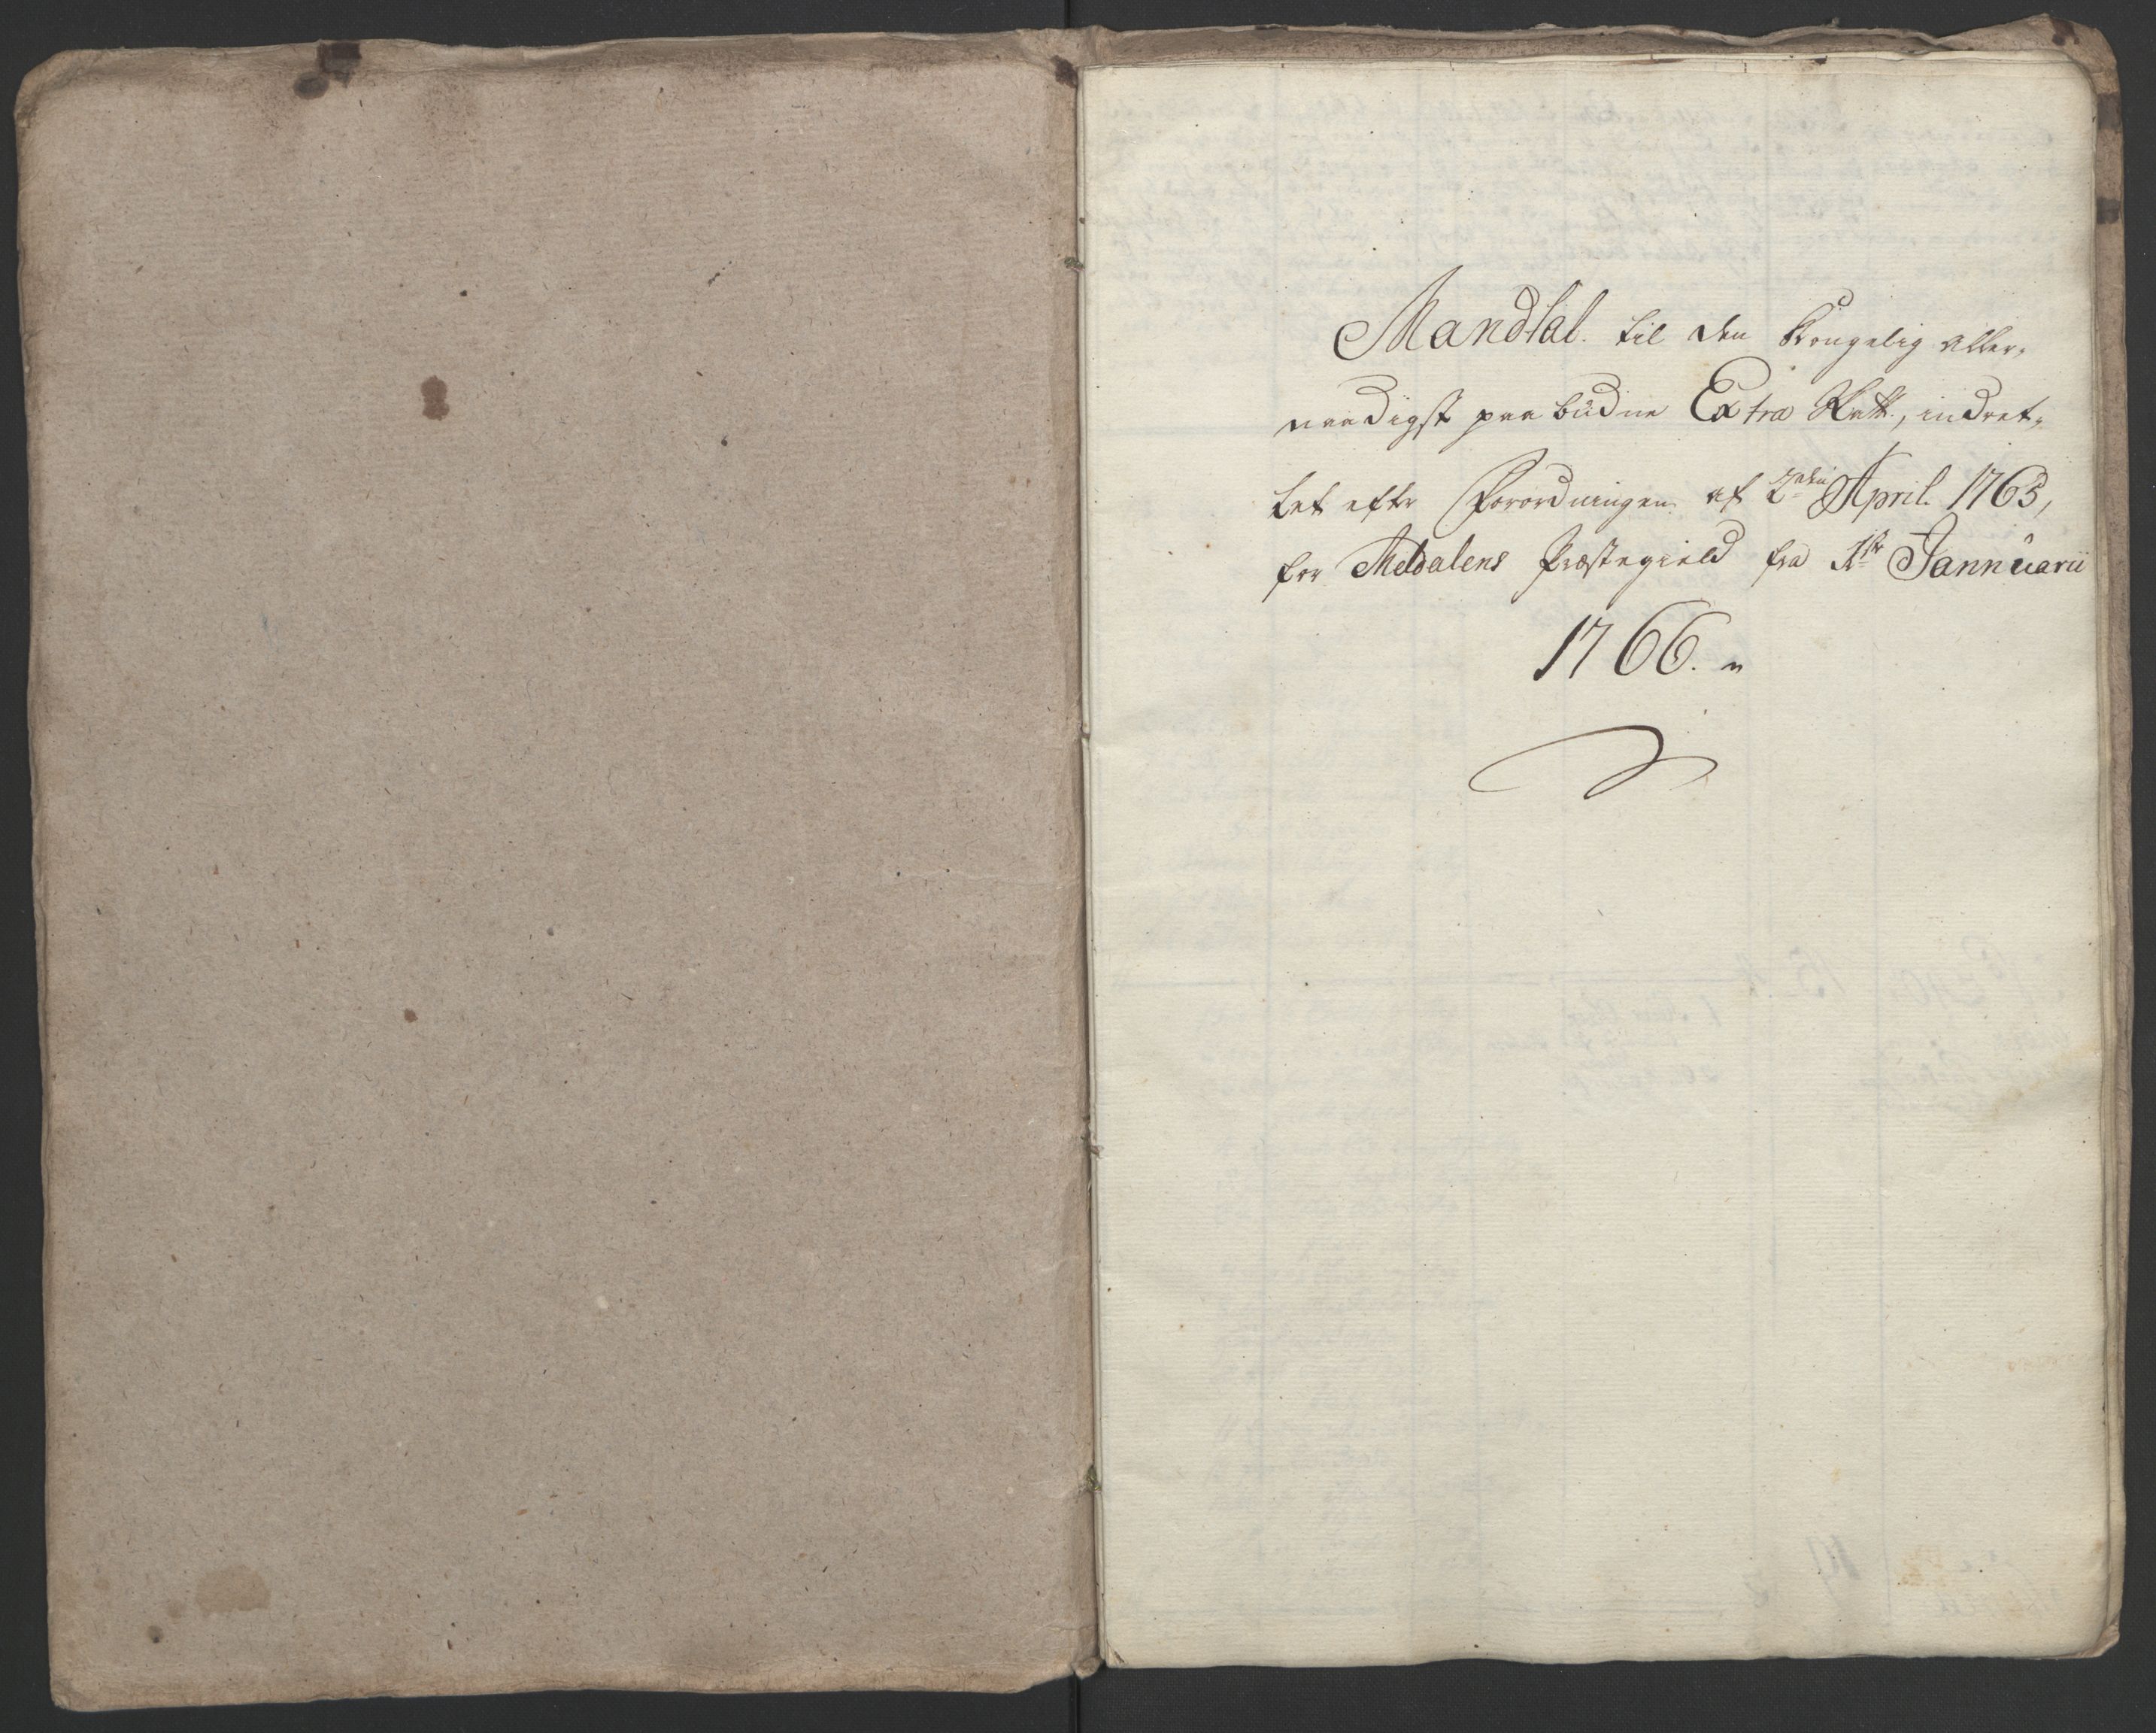 Mandtal. til den Kongelig aller„
naadigst paabüdne Extra Skatt, indret„
tet efter Forordningen af 2den April 1763,
for Meldalens Præstegield fra 1ste Jannüarii
1766.